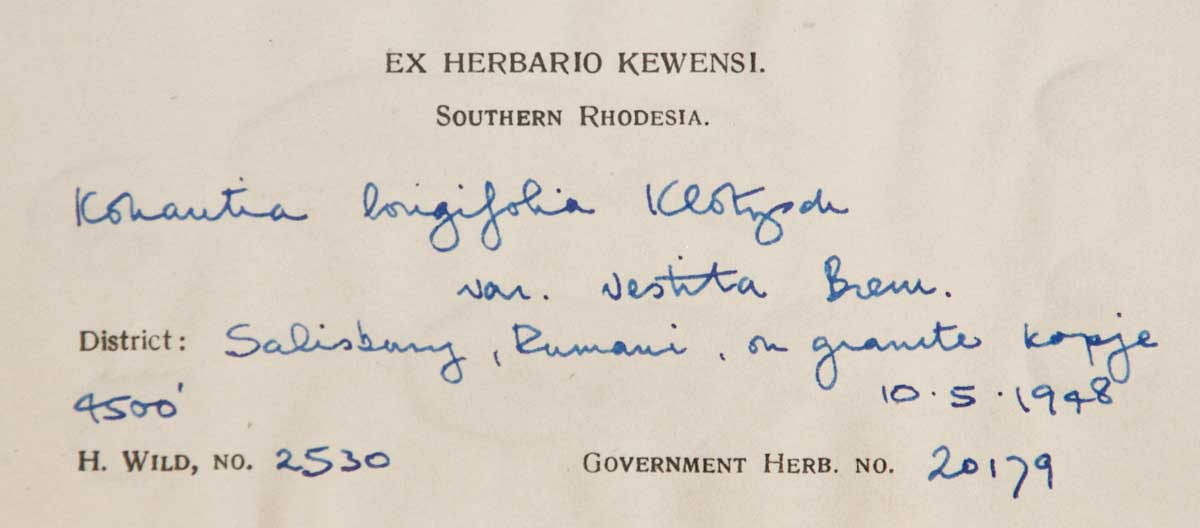 EX HERBARIO KEWENSI.
SOUTHERN RHODESIA.
Kohautia longifolia Klotzsch
var. vestita Brem.
District: Salisbury, Rumani, on granite kopje
4500' 10.5.1948
H. WILD, NO. 2530 GOVERNMENT HERB. NO. 20179